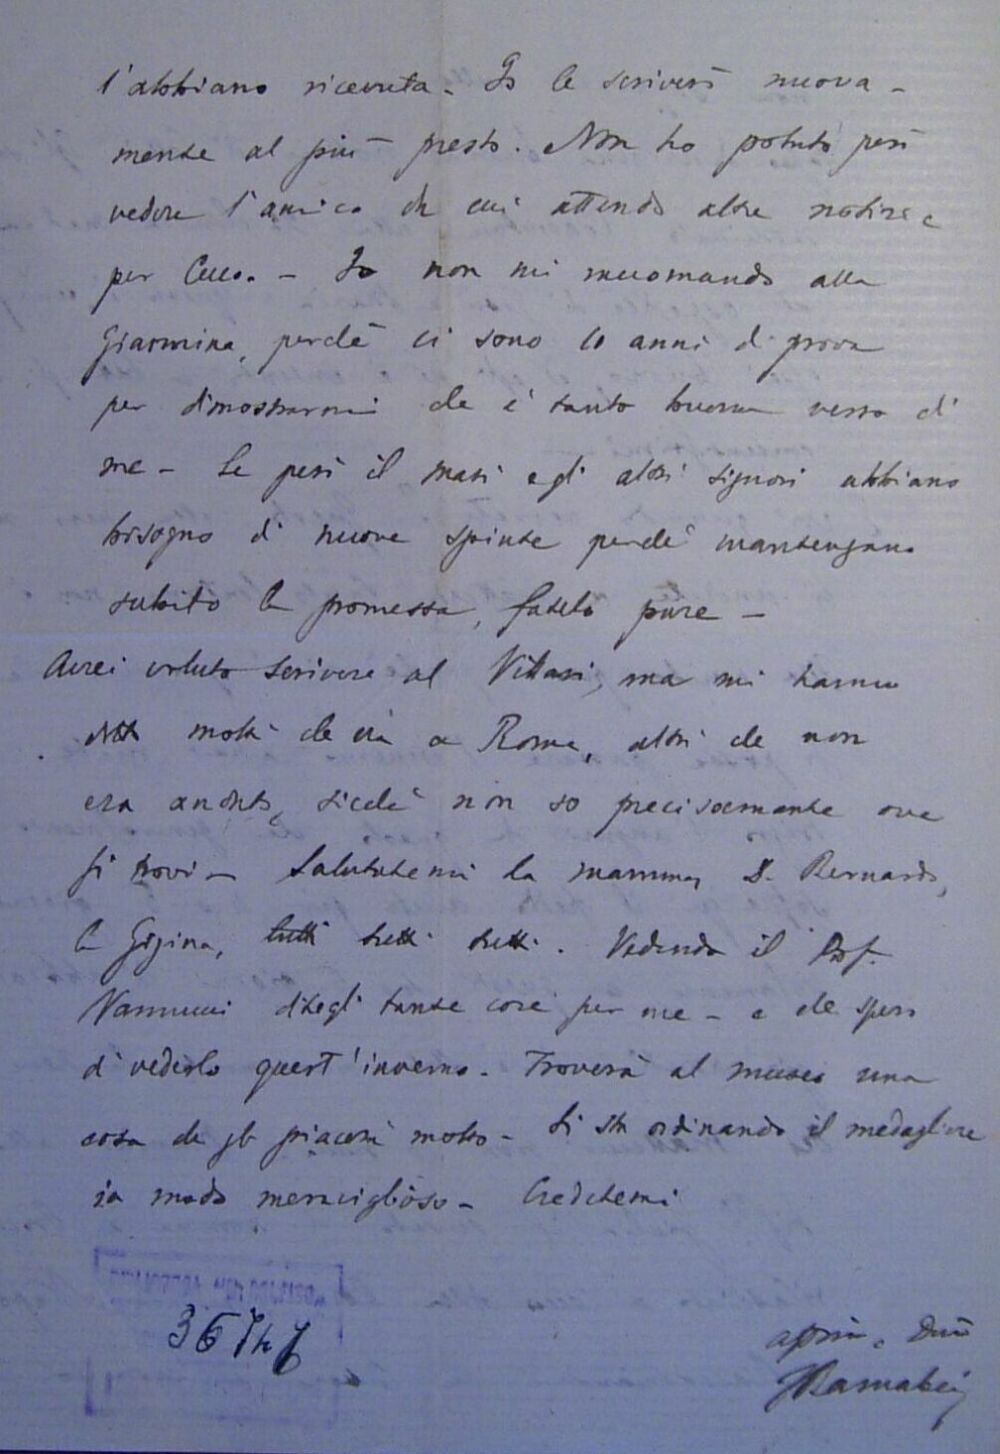 l'abbiano ricevuta - Io le scriverò nuova-
mente al più presto. Non ho potuto però
vedere l'amico da cui attendo altre notizie
per Cecco. - Io non mi raccomando alla
perchè ci sono 10 anni di prova
per dimostrarmi che è tanto buona verso di
me - Se però il Masi e gli altri signori abbiano
bisogno di nuove spinte perchè mantengano
subito la promessa, fatelo pure -
Avrei voluto scrivere al Villari, ma mi hanno
detto molti che era a Roma, altri che non
era andato, sicchè non so precisamente ove
si trovi - Salutatemi la mamma, D. Bernardo,
la Gigina, tutti tutti tutti. Vedendo il Prof.
Vannucci ditegli tante cose per me - e che spero
di vederlo quest'inverno. Troverà al museo una
cosa che gli piacerà molto - Si sta ordinando il medagliere
in modo meraviglioso - Credetemi
367
Barnabei